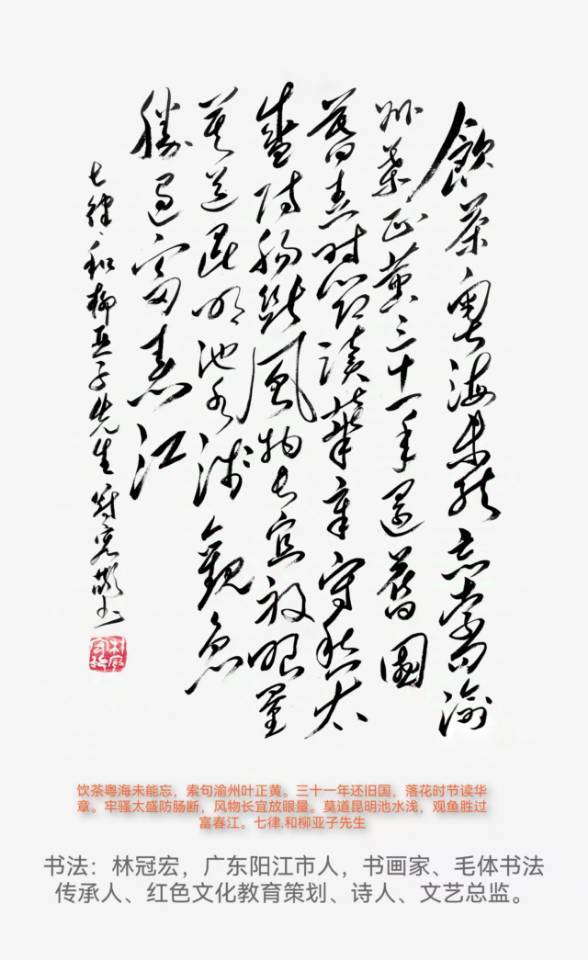 飲茶粵海未能忘索句渝
州葉正黃三十一年還舊國
暮春时节读華章牢愁太
盛防腸斷風物長宜放眼量
莫道昆明池水淺觀魚
勝過富春江
七律、和柳亞子先生 冠宏敬书
饮茶粤海未能忘，索句渝州叶正黄。三十一年还旧国，落花时节读华
章。牢骚太盛防肠断，风物长宜放眼量。莫道昆明池水浅，观鱼胜过
富春江。七律,和柳亚子先生
书法：林冠宏，广东阳江市人，书画家、毛体书法
传承人、红色文化教育策划、诗人、文艺总监。